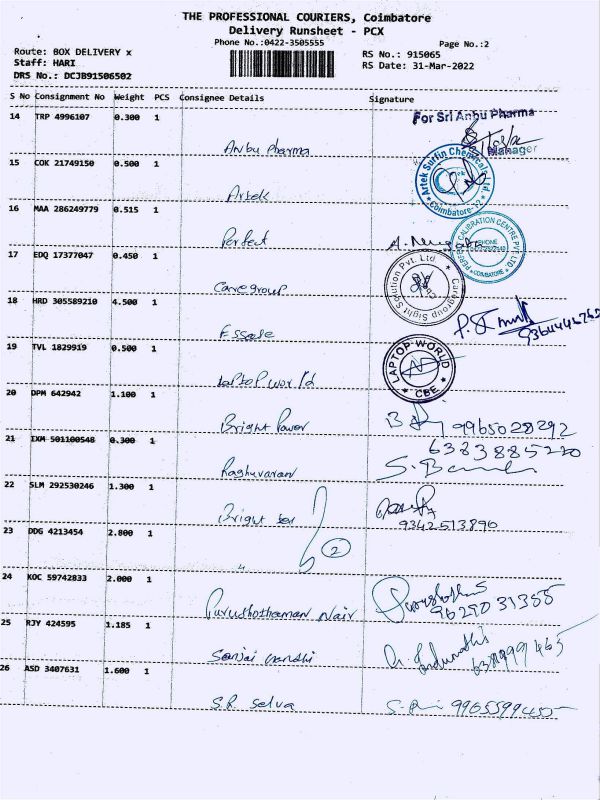 THE PROFESSIONAL COURIERS, Coimbatore
Delivery Runsheet - PCX
Phone No.:0422-3505555
Page No.:2
Route: BOX DELIVERY x
RS No.: 915065
Staff: HARI
RS Date: 31-Mar-2022
DRS No.: DCJB91506502
S No Consignment No Weight PCS Consignee Details Signature
14 TRP 4996107 0.300 1
For Sri Anbu Pharma
Manager
Anbu Pharma
15 COK 21749150 0.500 1
Artek Surfin Chemicals Ltd.
Coimbatore-
Artek
16 MAA 286249779 0.515 1
CALIBRATION CENTRE PVT LTD
COIMBATORE
Perfect
17 EDQ 17377047 0.450 1
Caregroup Sight Solution Pvt. Ltd.
Caregroup
18 HRD 305589210 4.500 1
19 TVL 1829919 0.500 1
LAPTOP WORLD
CBE
Laptop world
20 DPM 642942 1.100 1
Bright Power
9965028292
21 IXM 501100548 0.300 1
6383885220
Raghuvaran
22 SLM 292530246 1.300 1
Bright
9342513890
23 DDG 4213454 2.800 1
2
"
24 KOC 59742833 2.000 1
Purushothaman Nair
9629031355
25 RJY 424595 1.185 1
Sanjai Gandhi
26 ASD 3407631 1.600 1
S.R. Selva